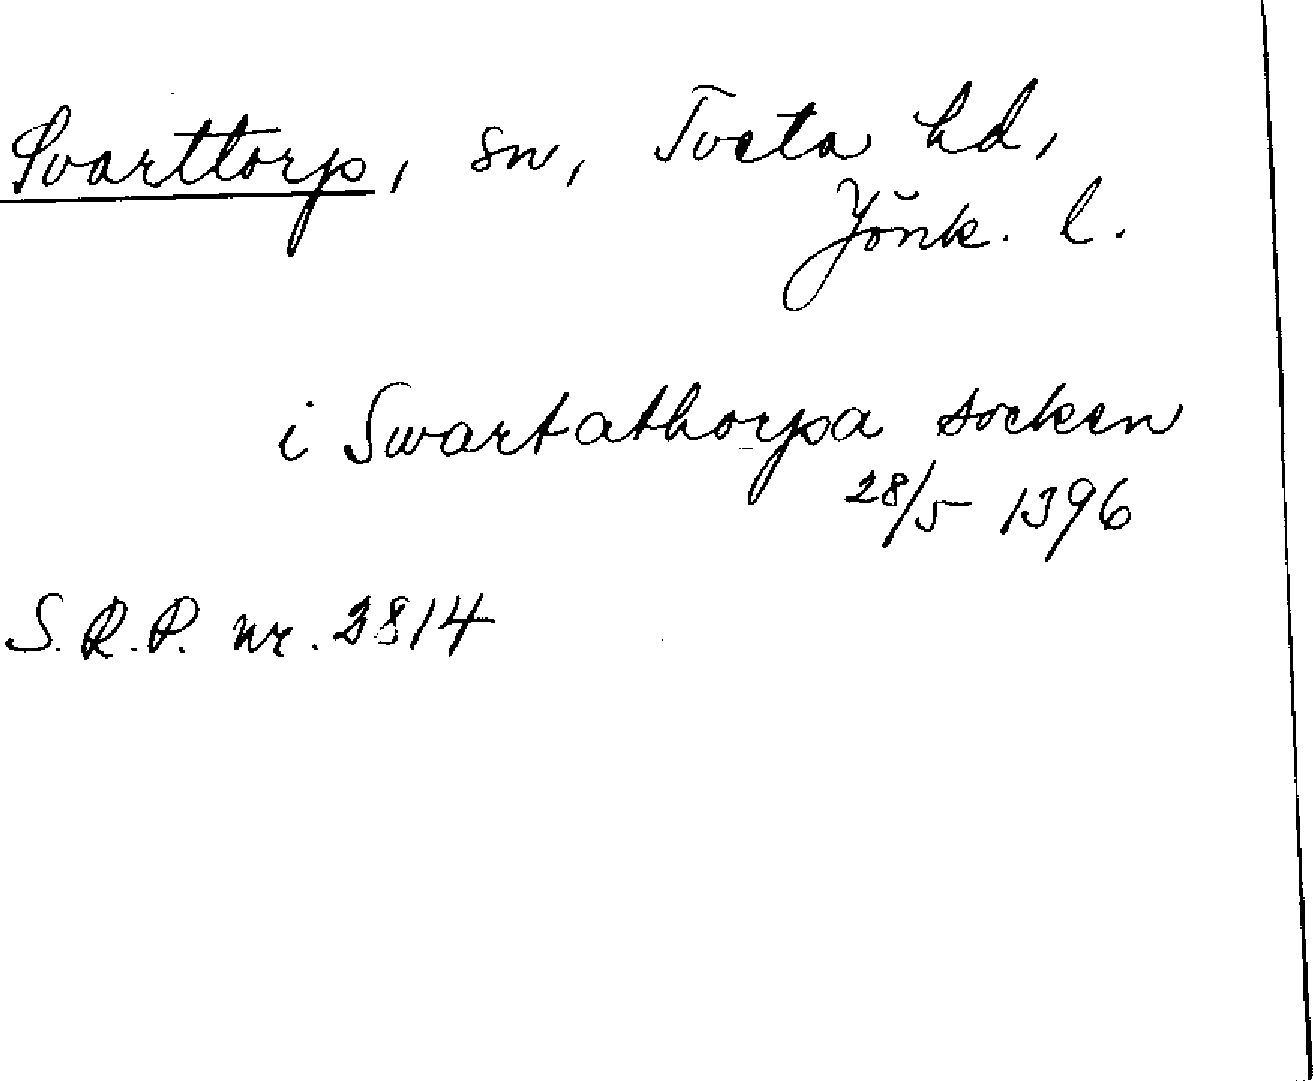 Svarttorp, sn, Tveta hd,
Jönk. l.
i Swartathorpa socken
28/5 1396
S.R.P. nr. 2814